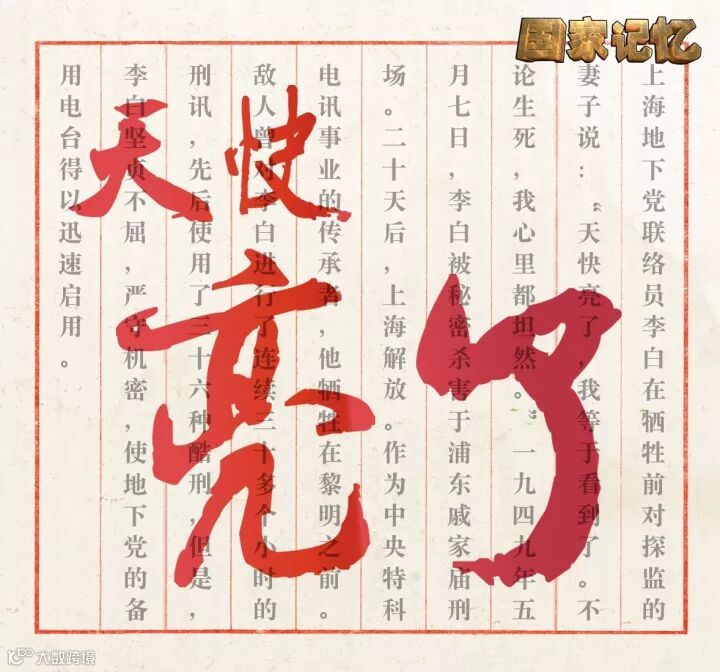 国家记忆
天快
亮了
上海地下党联络员李白在牺牲前对探监的
妻子说：“天快亮了，我等于看到了。不
论生死，我心里都坦然。”一九四九年五
月七日，李白被秘密杀害于浦东戚家庙刑
场。二十天后，上海解放。作为中央特科
电讯事业的传承者，他牺牲在黎明之前。
敌人曾对李白进行了连续三十多个小时的
刑讯，先后使用了三十六种酷刑，但是，
李白坚贞不屈，严守机密，使地下党的备
用电台得以迅速启用。
大数跨境